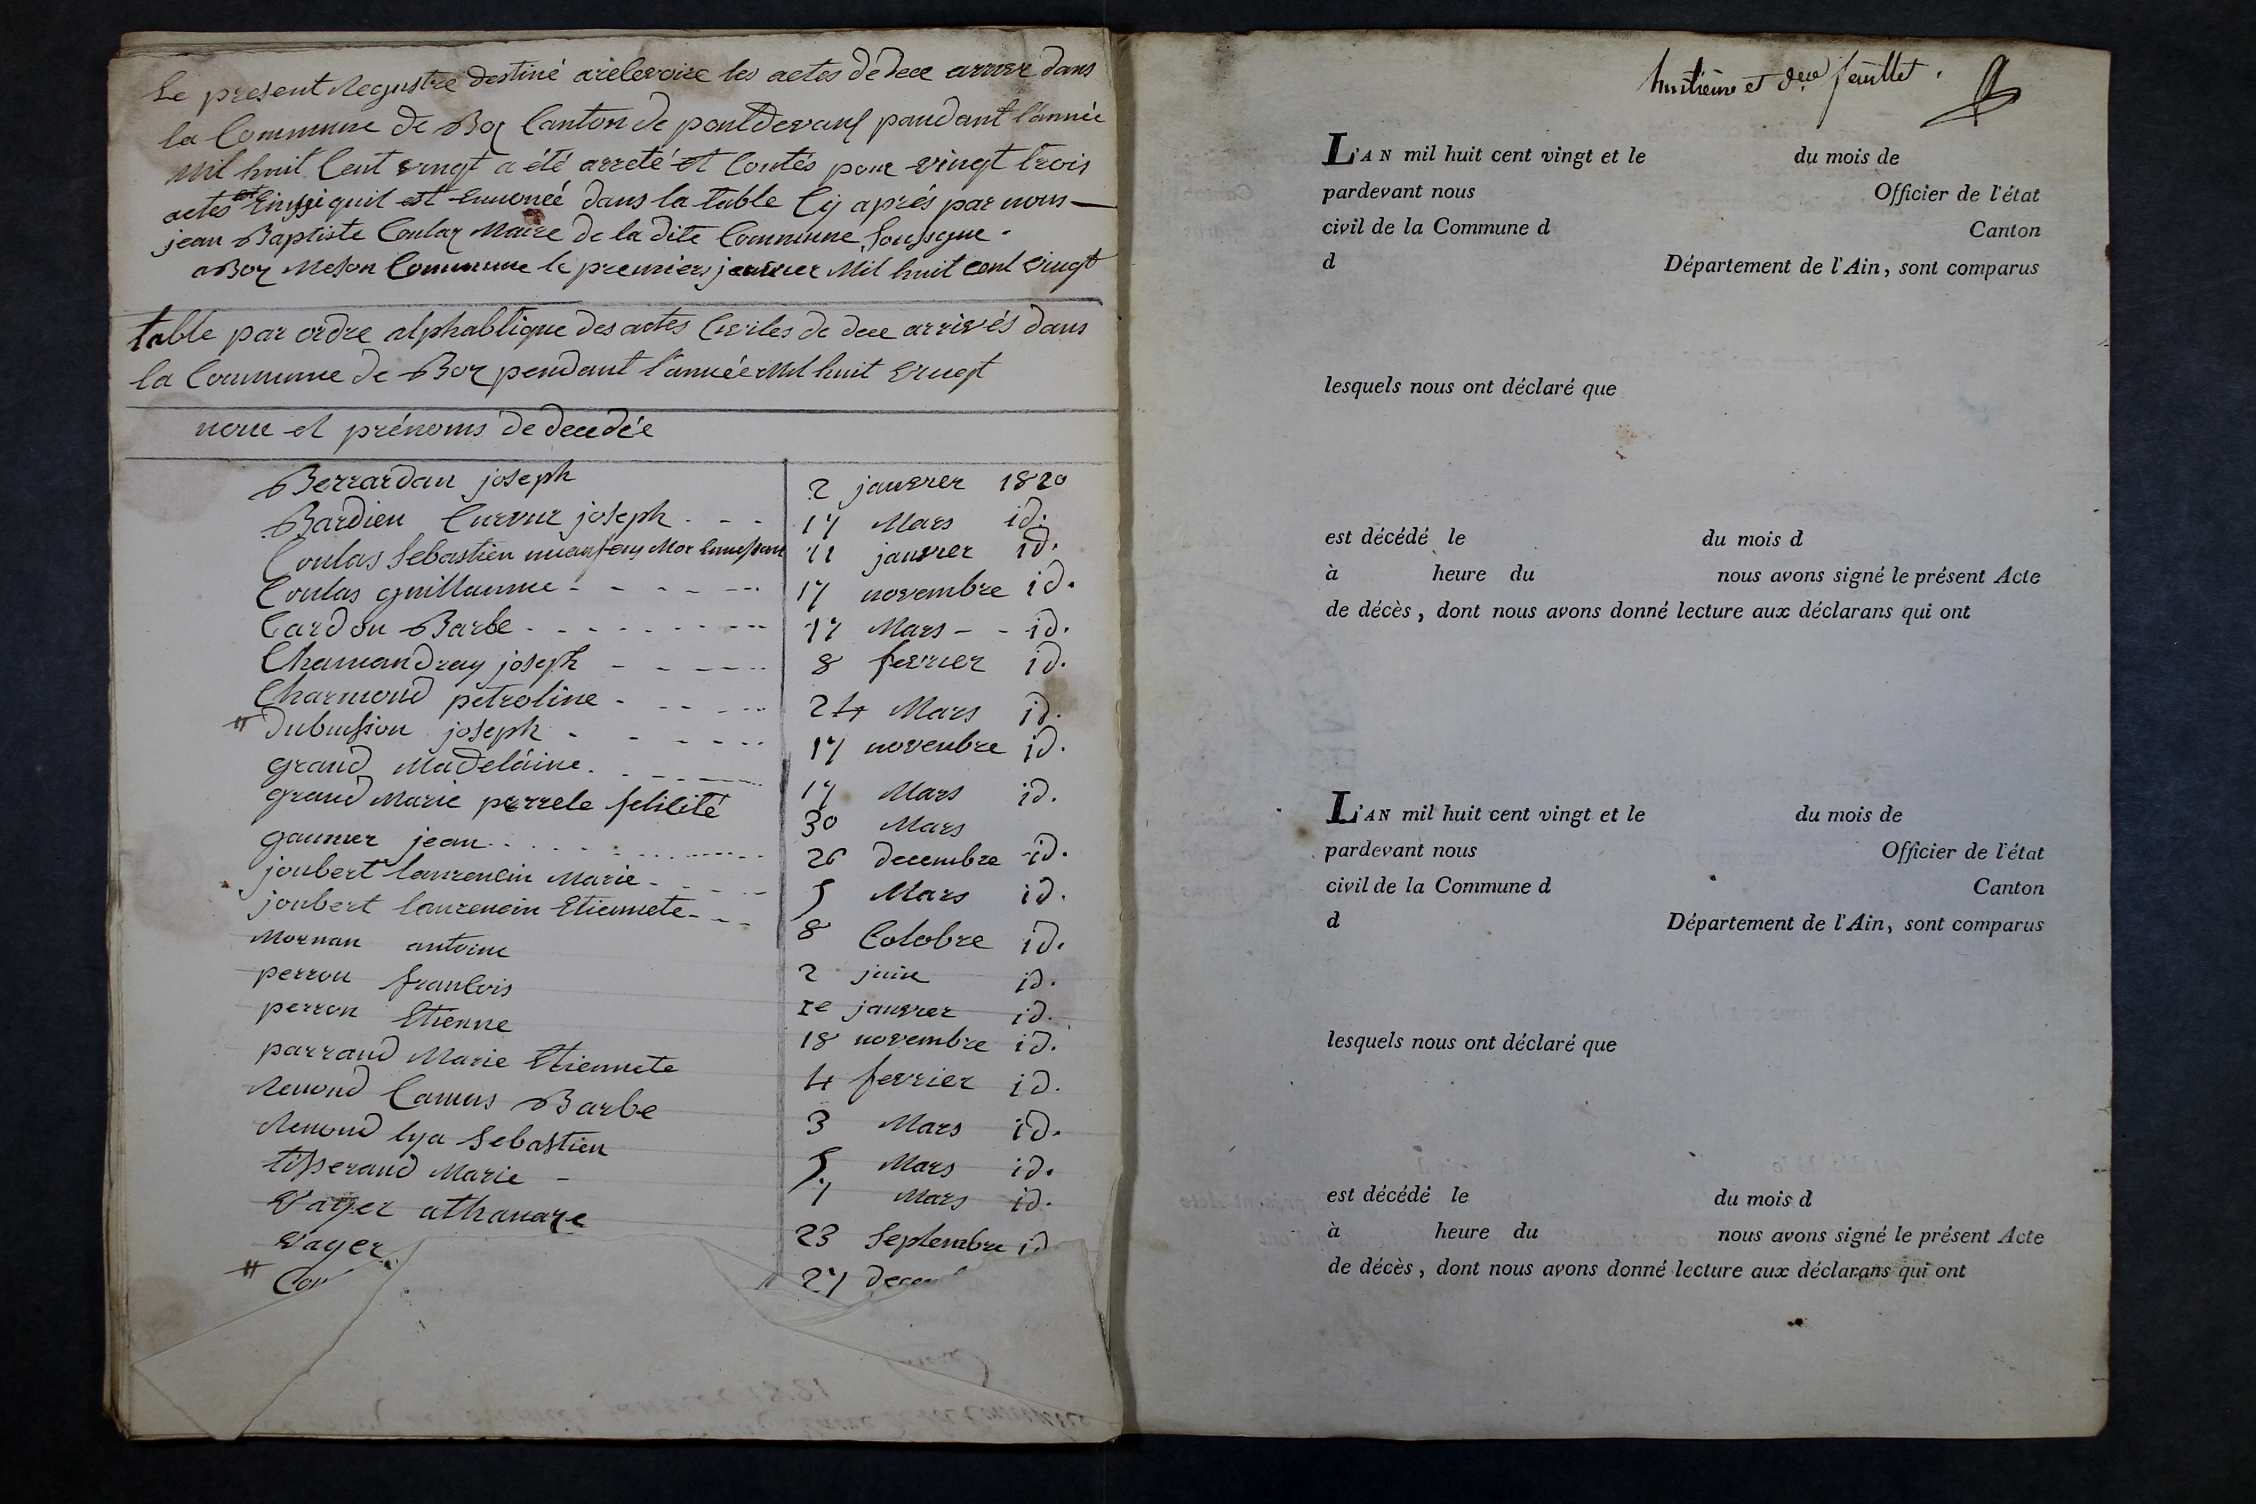 Le present Regustre destiné a relevoire les actes de dece arrivér dans
la Commune de Boz Canton de pontdevaux pandant l'année
Mil huit Cent vingt a été arreté et Contés pour vingt trois
actes et Cinssi quil est Ennoncé dans la table Cy aprés par nous
jean Baptiste Coulaz Maire de la dite Commune Soussigne.
a Boz Meson Commune le premiers janvier Mil huit cent vingt
table par ordre alphabtique des actes Civiles de dece arrivés dans
la Commune de Boz pendant l'année Mil huit vingt
nom et prénoms de decedée
Berrardan joseph 2 janvrer 1820
Bardien Curvur joseph 17 Mars id.
Coulas Sebastien 11 janvier id.
Coulas guillaume 17 novembre id.
Cardon Barbe 17 Mars id.
Chamandray joseph 8 fevrier id.
Charmond petroline 24 Mars id.
Dubuission joseph 17 novenbre id.
grand Madeláine 17 Mars id.
grand Marie perrele felicité 30 Mars
gaunier jean 26 decembre id.
joubert laurencin Marie 5 Mars id.
joubert laurencin Etiennete 8 Cotobre id.
Mornan antoine 2 juin id.
perron francois 1e janvrer id.
perron Etienne 18 novembre id.
parraud Marie Etiennete 4 fevrier id.
Renond Camus Barbe 3 Mars id.
Renond lya Sebastien 5 Mars id.
tisserand Marie 7 Mars id.
Vayer athanaze 23 Septembre id
Vayer 27 decem
Cou
huitième et dere feuillet.
L'AN mil huit cent vingt et le du mois de
pardevant nous Officier de l'état
civil de la Commune d Canton
d Département de l'Ain, sont comparus
lesquels nous ont déclaré que
est décédé le du mois d
à heure du nous avons signé le présent Acte
de décès, dont nous avons donné lecture aux déclarans qui ont
L'AN mil huit cent vingt et le du mois de
pardevant nous Officier de l'état
civil de la Commune d Canton
d Département de l'Ain, sont comparus
lesquels nous ont déclaré que
est décédé le du mois d
à heure du nous avons signé le présent Acte
de décès, dont nous avons donné lecture aux déclarans qui ont